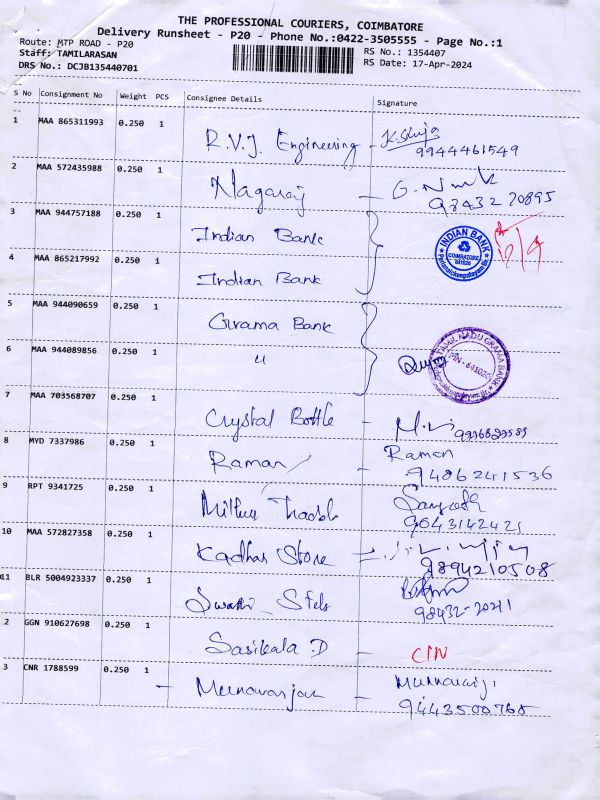 THE PROFESSIONAL COURIERS, COIMBATORE
Delivery Runsheet - P20 - Phone No.:0422-3505555 - Page No.:1
Route: MTP ROAD - P20
RS No.: 1354407
Staff: TAMILARASAN
RS Date: 17-Apr-2024
DRS No.: DCJB135440701
S No Consignment No Weight PCS Consignee Details Signature
1 MAA 865311993 0.250 1 R.V.J. Engineering - K.Shija
9944461549
2 MAA 572435988 0.250 1 Nagaraj - G.
20895
3 MAA 944757188 0.250 1 Indian Bank
INDIAN BANK
COIMBATORE
641020
Perianaickenpalayam Br.
4 MAA 865217992 0.250 1 Indian Bank
5 MAA 944090659 0.250 1 Grama Bank
TAMIL NADU GRAMA BANK
PIN - 641020
6 MAA 944089856 0.250 1 "
7 MAA 703568707 0.250 1 Crystal Bottle -
8 MYD 7337986 0.250 1 Raman - Raman
9486241536
9 RPT 9341725 0.250 1
9643142421
10 MAA 572827358 0.250 1 Kadhar Store -
9894210508
11 BLR 5004923337 0.250 1 Swathi
98432-20211
2 GGN 910627698 0.250 1 Sasikala D - CIN
3 CNR 1788599 0.250 1 -
9443500768